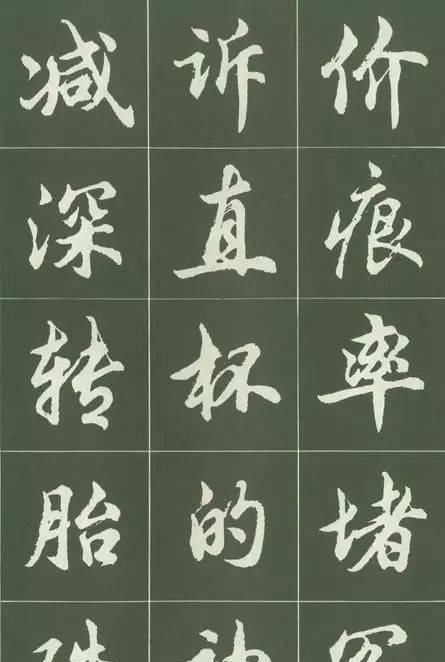 价痕率堵
诉直杯的
减深转胎